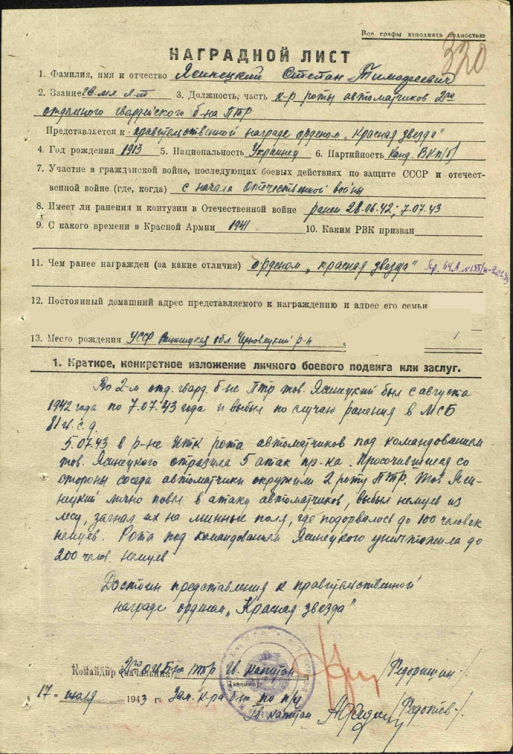 Все графы заполнять полностью
320
НАГРАДНОЙ ЛИСТ
1. Фамилия, имя и отчество Ясинецкий Степан Тимофеевич
2. Звание гв. мл. л-т 3. Должность, часть к-р роты автоматчиков 2го
отдельного гвардейского б-на ПТР
Представляется к правительственной награде орденом „Красная звезда"
4. Год рождения 1913 5. Национальность Украинец 6. Партийность Канд. ВКП(б)
7. Участие в гражданской войне, последующих боевых действиях по защите СССР и отечест-
венной войне (где, когда) с начала Отечественной войны
8. Имеет ли ранения и контузии в Отечественной войне ранен 28.06.42; 7.07.43
9. С какого времени в Красной Армии 1941 10. Каким РВК призван
11. Чем ранее награжден (за какие отличия) орденом „Красная звезда"
12. Постоянный домашний адрес представляемого к награждению и адрес его семьи
13. Место рождения УССР Винницкая обл. Черновецкий р-н
1. Краткое, конкретное изложение личного боевого подвига или заслуг.
Во 2-м отд. гвард. б-не ПТР тов. Ясинецкий был с августа
1942 года по 7.07.43 года и выбыл по случаю ранения в МСБ
81 гв. с.д.
5.07.43 в р-не рота автоматчиков под командованием
тов. Ясинецкого отразила 5 атак пр-ка. Просочившиеся со
стороны соседа автоматчики окружили 2 роту ПТР. Тов. Яси-
нецкий лично повел в атаку автоматчиков, выбил немцев из
лесу, загнал их на минные поля, где подорвалось до 100 человек
немцев. Рота под командованием Ясинецкого уничтожила до
200 челов. немцев
Достоин представления к правительственной
награде орденом „Красная звезда"
Командир (начальник) ПТР гв. капитан /Федоришин/
17 июля 1943 г. Зам. к-ра б-на по п/ч
гв. капитан